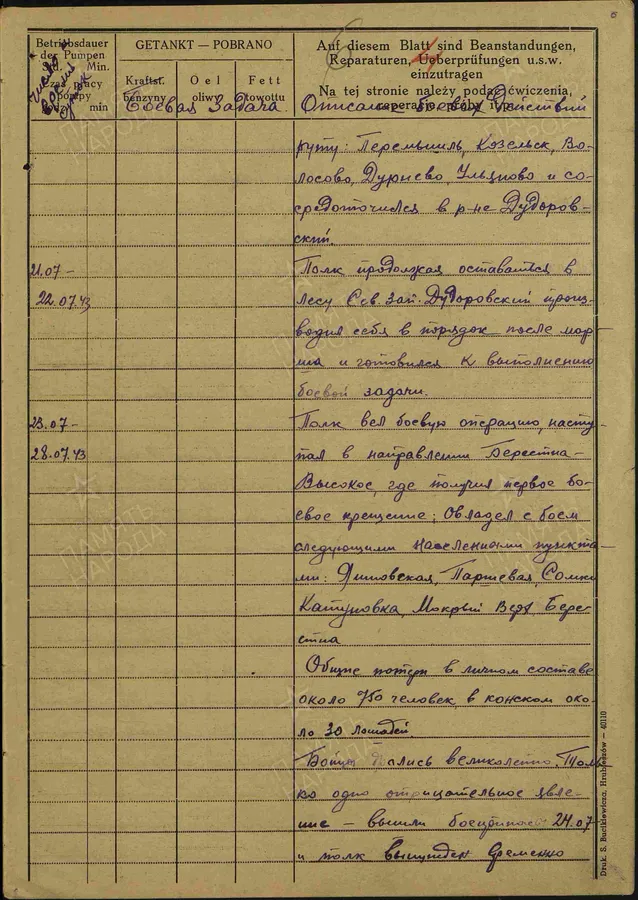 Betriebsdauer
der Pumpen
Min.
min
число
время
суток
GETANKT — POBRANO
Kraftst. benzyny
Oel oliwy
Fett towottu
Боевая задача
Auf diesem Blatt sind Beanstandungen,
Reparaturen, Ueberprüfungen u.s.w.
einzutragen
Na tej stronie należy podać ćwiczenia,
Описание боевых действий
руту: Перемышль, Козельск, Во-
лосово, Дурнево, Ульяново и со-
средоточился в р-не Дудоров-
ский.
21.07 –
22.07.43
Полк продолжая оставаться в
лесу Сев. Зап. Дудоровский произ-
водил себя в порядок после мар-
ша и готовился к выполнению
боевой задачи.
23.07 –
28.07.43
Полк вел боевую операцию, насту-
пал в направлении Берестна –
Высокое, где получил первое бо-
евое крещение; Овладел с боем
следующими населенными пункта-
ми: Паршевая, Сомки
Катуновка, Мокрый Верх Берес-
тна
Общие потери в личном составе
около 750 человек, в конском око-
ло 30 лошадей
Бойцы дрались великолепно. Толь-
ко одно отрицательное явле-
ние – вышли боеприпасы 24.07
и полк вынужден временно
Druk. S. Buckiewicza, Hrubieszów — 40110
ПАМЯТЬ
НАРОДА